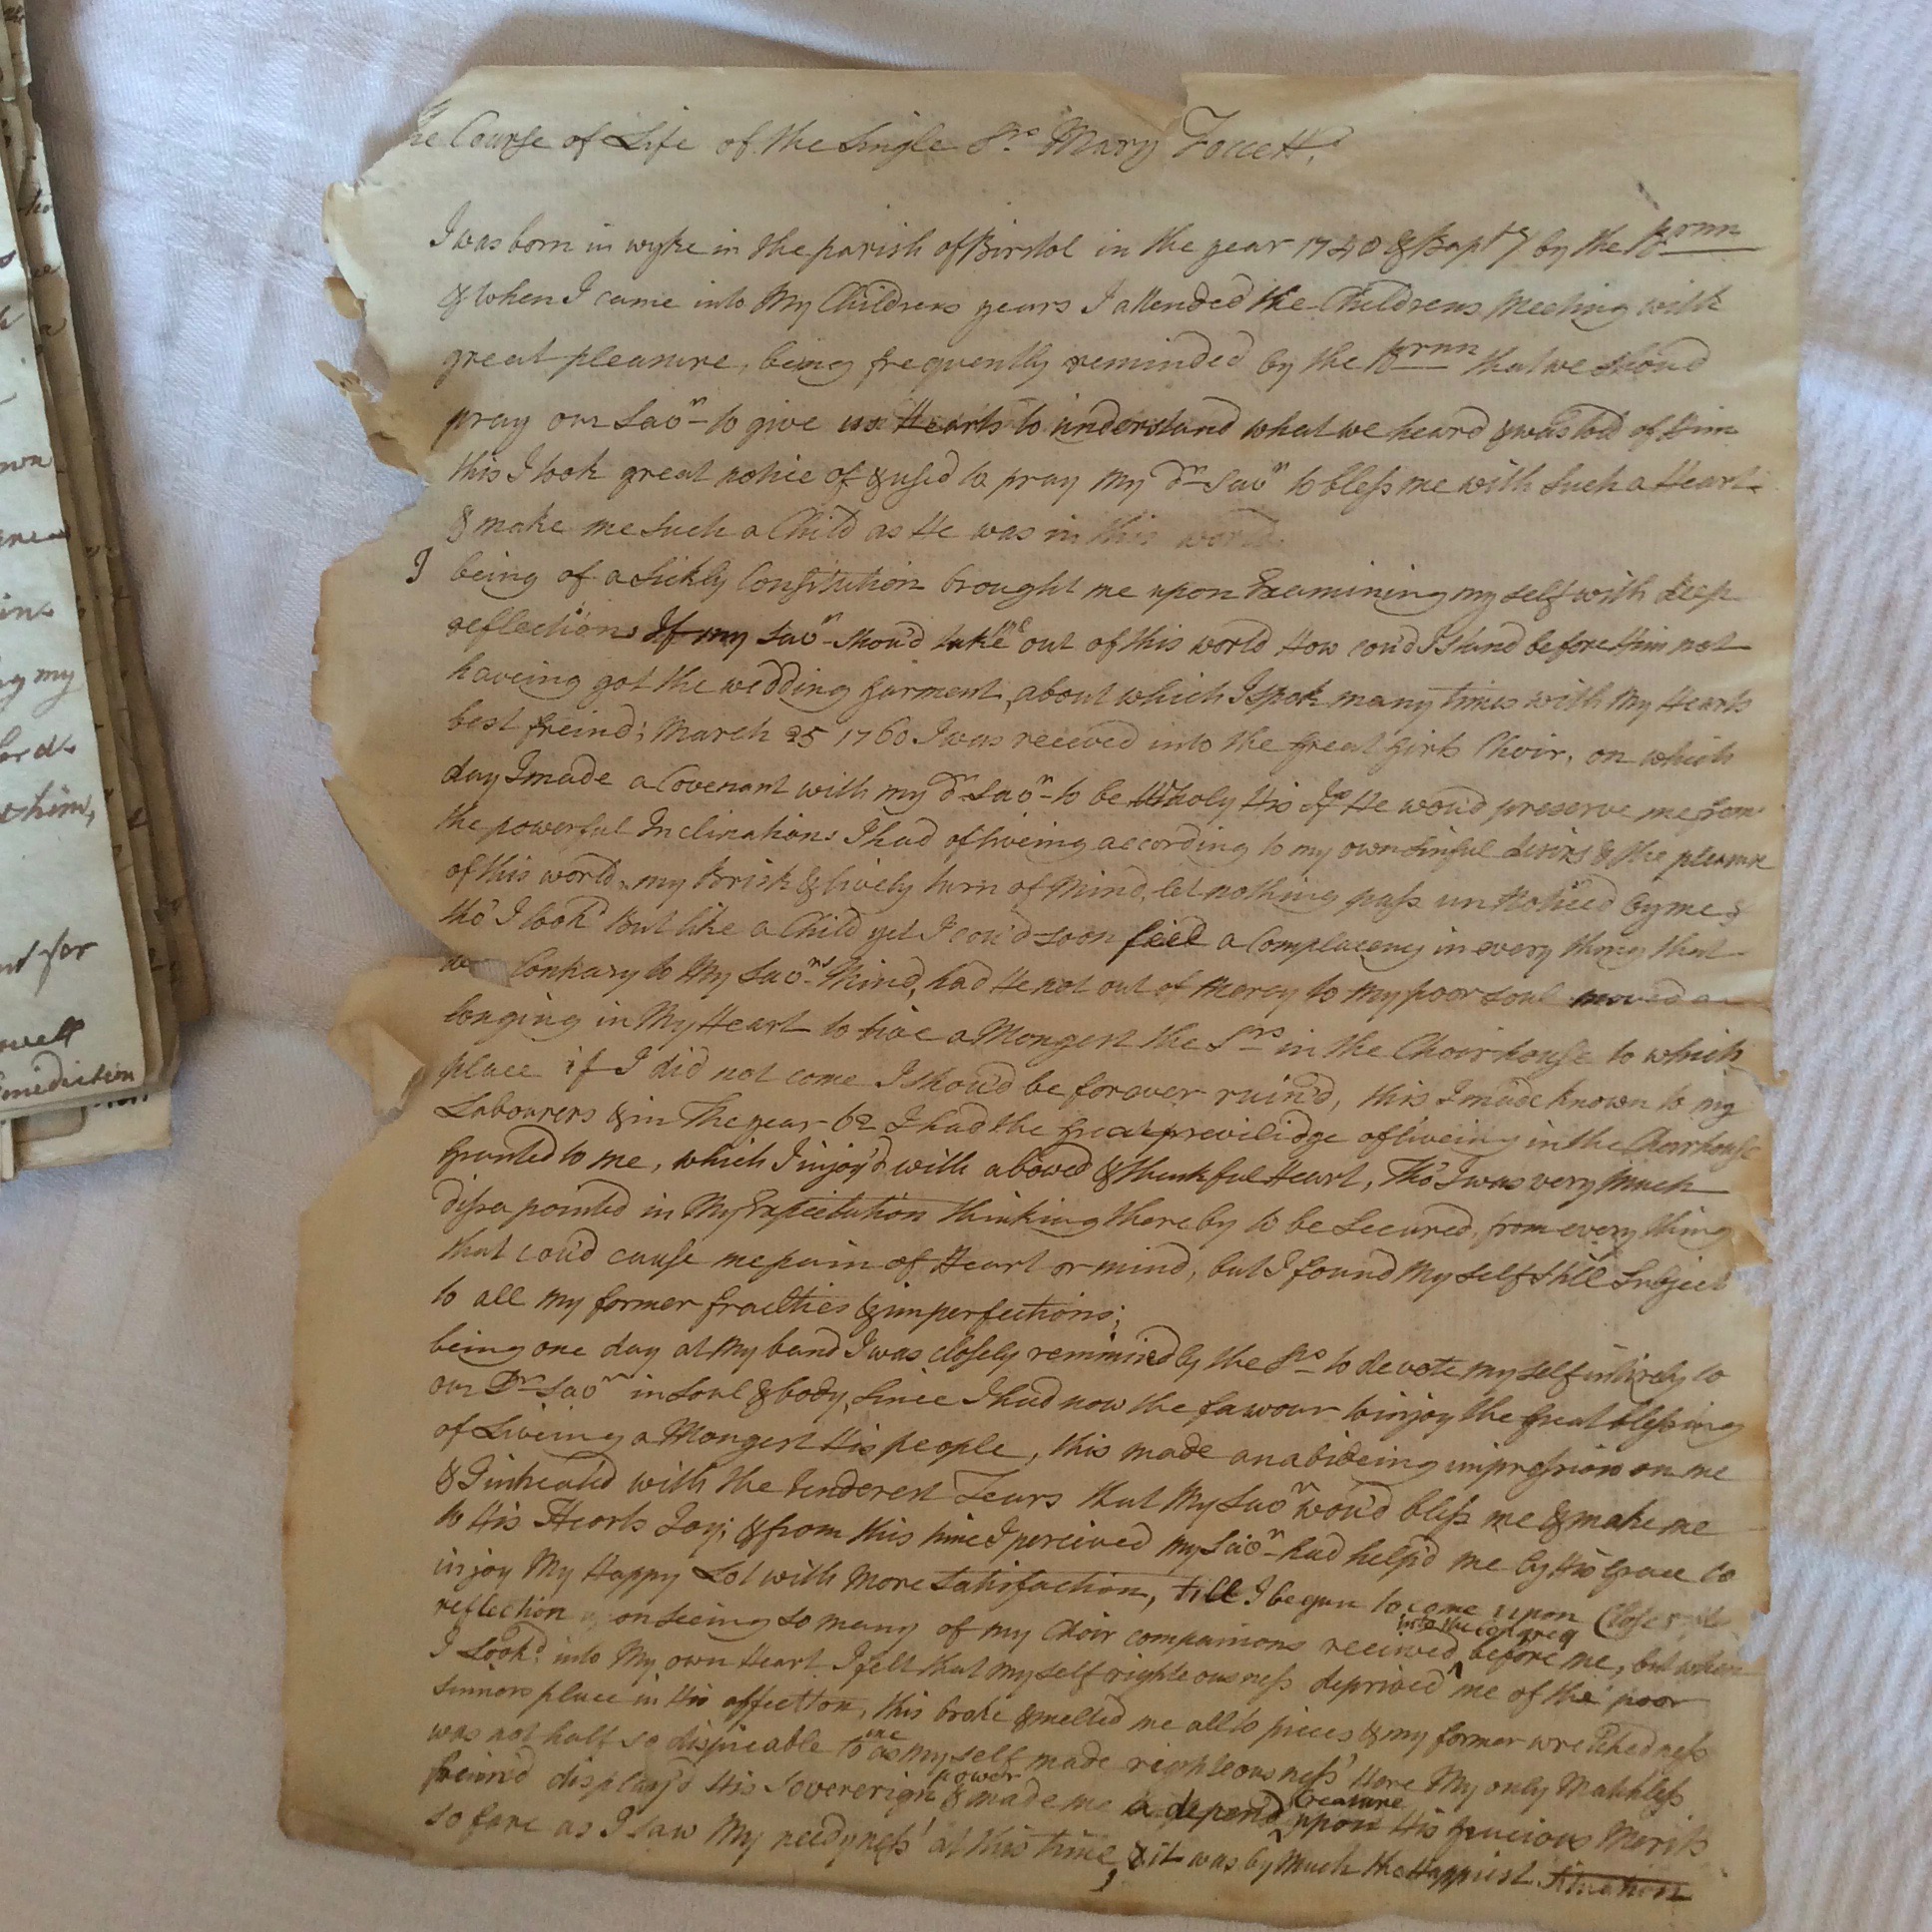 he Course of Life of the Single Srs Mary Foccett.
I was born in wyke in the parish of Birstol in the year 1740 & Bapt by the Brnn
& when I came into My Childrens years I attended the Childrens Meeting with
great pleasure, being frequently reminded by the Brnn that we shoud
pray our Savr to give us Hearts to understand what we heard & was told of Him
this I took great notice of & used to pray my dr Savr to bless me with such a Heart
& make me such a Child as He was in this world
I being of a Sickly Constitution brought me upon Examining my self with deep
reflections If my Savr shou'd take me out of this world How cou'd I stand before Him not
haveing got the wedding garment, about which I spok many times with My Hearts
best freind; March 25 1760 I was received into the great girls Choir, on which
day I made a Covenant with my dr Savr to be Wholy His if He wou'd preserve me from
the powerful Inclinations I had of liveing according to my own sinful desirs & the pleasure
of this world, my Brisk & lively turn of Mind, let nothing pass un Noticed by me &
tho' I look'd But like a Child yet I cou'd soon feel a Complacency in every thing that
Contrary to My Savrs Mind, had He not out of Mercy to My poor soul moved a
longing in My Heart to live a Mongest the Srs in the Choir house to which
place if I did not come I shou'd be forever ruin'd, this I made known to my
Labourers & in The year 62 I had the great previlidge of liveing in the Choirhouse
Granted to me, which I injoy'd with a bowed & thankful Heart, Tho' I was very Much
dissa pointed in My Expectation thinking there by to be Secured from every thing
that cou'd cause me pain of Heart or mind, but I found My self still Subject
to all my former frailties & imperfections;
being one day at My band I was closely remmined by the Srs to devote my self intirely to
our Dr Savr in soul & body, since I had now the favour to injoy the great blessing
of Liveing a Mongest His people, this made an abideing impression on me
& I intreated with the tenderest Tears that My Savr wou'd bless me & make me
to His Hearts Joy; & from this time I perceived my Savr had help'd me by His Grace to
injoy My Happy Lot with More satisfaction, till I began to come upon Close
reflection upon seeing so many of my Choir companions received into the congreg before me, but when
I Look'd into My own Heart I felt that my self righteousness deprived me of the poor
sinners place in His affection, this broke & melted me all to pieces & my former wretchedness
was not half so dispicable to me as my self made righteousness Here My only Matchless
freind display'd His Sovererign power & made me a depend Creature upon His gracious Merits
so fare as I saw My needyness at this time, & it was by Much the Happiest Situation
for
well
my
him,